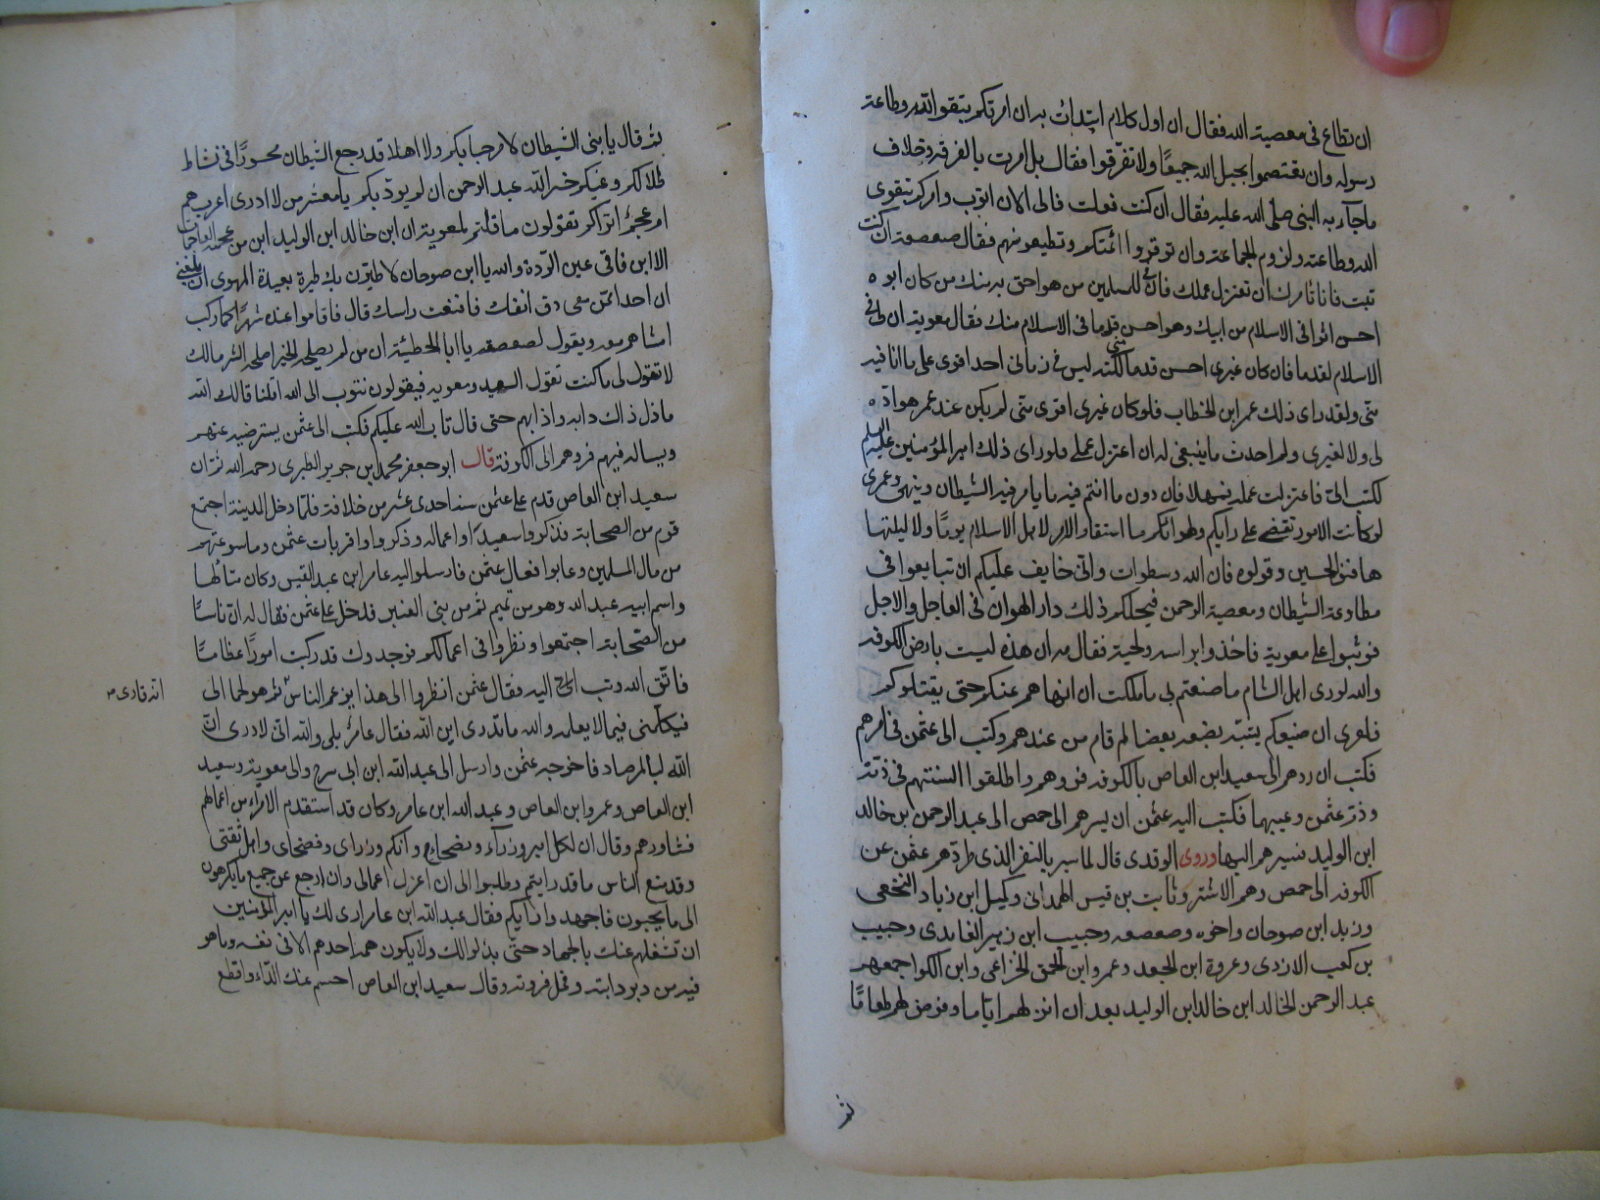 ان تطاع فى معصية الله فقال ان اول كلام ابتدات به ان امرتكم بتقوا الله وطاعة
رسوله وان تعتصموا بحبل الله جميعًا ولا تفرّقوا فقال بل امرت بالفرقه وخلاف
ماجآء به النبى صلى الله عليه فقال ان كنت فعلت فالى الان اتوب وامركم بتقوى
الله وطاعته ولزوم الجماعة وان توقروا ائمتكم وتطيعونهم فقال صعصعة ان كنت
تبت فانا نامرك ان تعتزل عملك فان للمسلمين من هو احق به منك من كان ابوه
احسن اثرا فى الاسلام من ابيك وهو احسن قدما فى الاسلام منك فقال معوية ان لى فى
الاسلام لقدما فان كان غيرى احسن قدما منى لكنه ليس فى زمانى احد اقوى على ما انا فيه
منى ولقد راى ذلك عمر ابن الخطاب فلو كان غيرى اقوى منى لم يكن عند عمر هوادة
لى ولا لغيرى ولم احدث ما ينبغى له ان اعتزل عملى ولو راى ذلك امير المؤمنين عليه السلم
لكتب الىّ فاعتزلت عمله فمهلا فان دون ما انتم فيه ما يامر فيه الشيطان وينهى وعمرى
لو كانت الامور تقضى على رايكم وهوائكم ما استقام الامر لاهل الاسلام يومًا ولا ليلتها
الحسين وقولوه فان الله ذو سطوات وانى خايف عليكم ان تبايعوا فى
مطاوعة الشيطان ومعصية الرحمن فيحلكم ذلك دار الهوان فى العاجل والاجل
فوثبوا على معوية فاخذوا براسه ولحيته فقال مه ان هذه ليست بارض الكوفه
والله لو راى اهل الشام ما صنعتم بى ما ملكت ان انهاهم عنكم حتى يقتلوكم
فلعمرى ان صنيعكم يشبه بعضه بعضا ثم قام من عندهم وكتب الى عثمن فى امرهم
فكتب ان ردهم الى سعيد ابن العاص بالكوفه فردهم واطلقوا السنتهم فى ذمّه
وذمّ عثمن وعيبهما فكتب اليه عثمن ان يسيرهم الى حمص الى عبد الرحمن بن خالد
ابن الوليد فسيرهم اليها وروى الوقدى قال لما سير بالنفر الذى طردهم عثمن عن
الكوفه الى حمص وهم الاشتر وثابت بن قيس الهمدانى وكميل ابن زياد النخعى
وزيد ابن صوحان واخوه صعصعه وحبيب ابن زهير الغامدى وحبيب
بن كعب الازدى وعروة ابن الجعد وعمرو ابن الحمق الخزاعى وابن الكوا جمعهم
عبد الرحمن الخالد ابن خالد ابن الوليد بعد ان انزلهم ايّاما وفرض لهم طعامًا
ثم
ثم قال يا بنى الشيطان لا مرحبا بكم ولا اهلا قد رجع الشيطان محسورًا فى نشاط
ضلالكم وغيكم خسر الله عبد الرحمن ان لم يوذ بكم يا معشر من لا ادرى اعرب هم
ام عجم اتراكم تقولون ما قلتم لمعوية ان ابن خالد ابن الوليد ابن من عجمته العاجمات
الا ابن فاقئ عين الردة والله يا ابن صوحان لاطيرن بك طيرة بعيدة المهوى ان بلغنى
ان احدا ممن معى دق انفك فاقنعت راسك قال فاقاموا عنده شهرًا كلما ركب
امشاهم معه ويقول لصعصعه يا ابا الخطيئة ان من لم يصلحه الخير اصلحه الشر مالك
لا تقول لى ما كنت تقول لسعيد ومعويه فيقولون نتوب الى الله اقلنا قالك الله
ماذل ذاك دابه ودابهم حتى قال تاب الله عليكم فكتب الى عثمن يسترضيه عنهم
ويساله فيهم فردهم الى الكوفة قال ابو جعفر محمد ابن جرير الطبرى رحمه الله ثم ان
سعيد ابن العاص قدم على عثمن سنه احدى عشر من خلافته فلما دخل المدينة اجتمع
قوم من الصحابة فذكروا سعيدًا واعماله وذكروا قربات عثمن وما سوغهم
من مال المسلمين وعابوا فعال عثمن فارسلوا اليه عامر ابن عبد القيس وكان متالها
واسم ابيه عبد الله وهو من تميم ثم من بنى العنبر فدخل على عثمن فقال له ان ناسًا
من الصحابة اجتمعوا ونظروا فى اعمالكم فوجدوك قد ركبت امورًا عظامًا
فاتق الله وتب اليه فقال عثمن انظروا الى هذا ابن عم الناس ثم هو لجا الى
انه قارى
فيكلمنى فيما لا يعلمه والله ما تدرى اين الله فقال عامر بلى والله انى لادرى ان
الله لبالمرصاد فاخرجه عثمن وارسل الى عبد الله ابن ابى سرح والى معوية وسعيد
ابن العاص وعمرو ابن العاص وعبد الله ابن عامر وكان قد استقدم الامراء من اعمالهم
فشاورهم وقال ان لكل امير وزرآء ونصحاء وانكم وزراى ونصحاى واهل ثقتى
وقد صنع الناس ما قد رايتم وطلبوا الى ان اعزل عمالى وان ارجع عن جميع ما يكرهون
الى ما يحبون فاجهدوا رايكم فقال عبد الله ابن عامر ارى لك يا امير المؤمنين
ان تشغلهم عنك بالجهاد حتى يذلوا لك ولا يكون همه احدهم الا فى نفسه وما هو
فيه من دبر دابته وقمل فروته وقال سعيد ابن العاص احسم عنك الدّاء واقطع